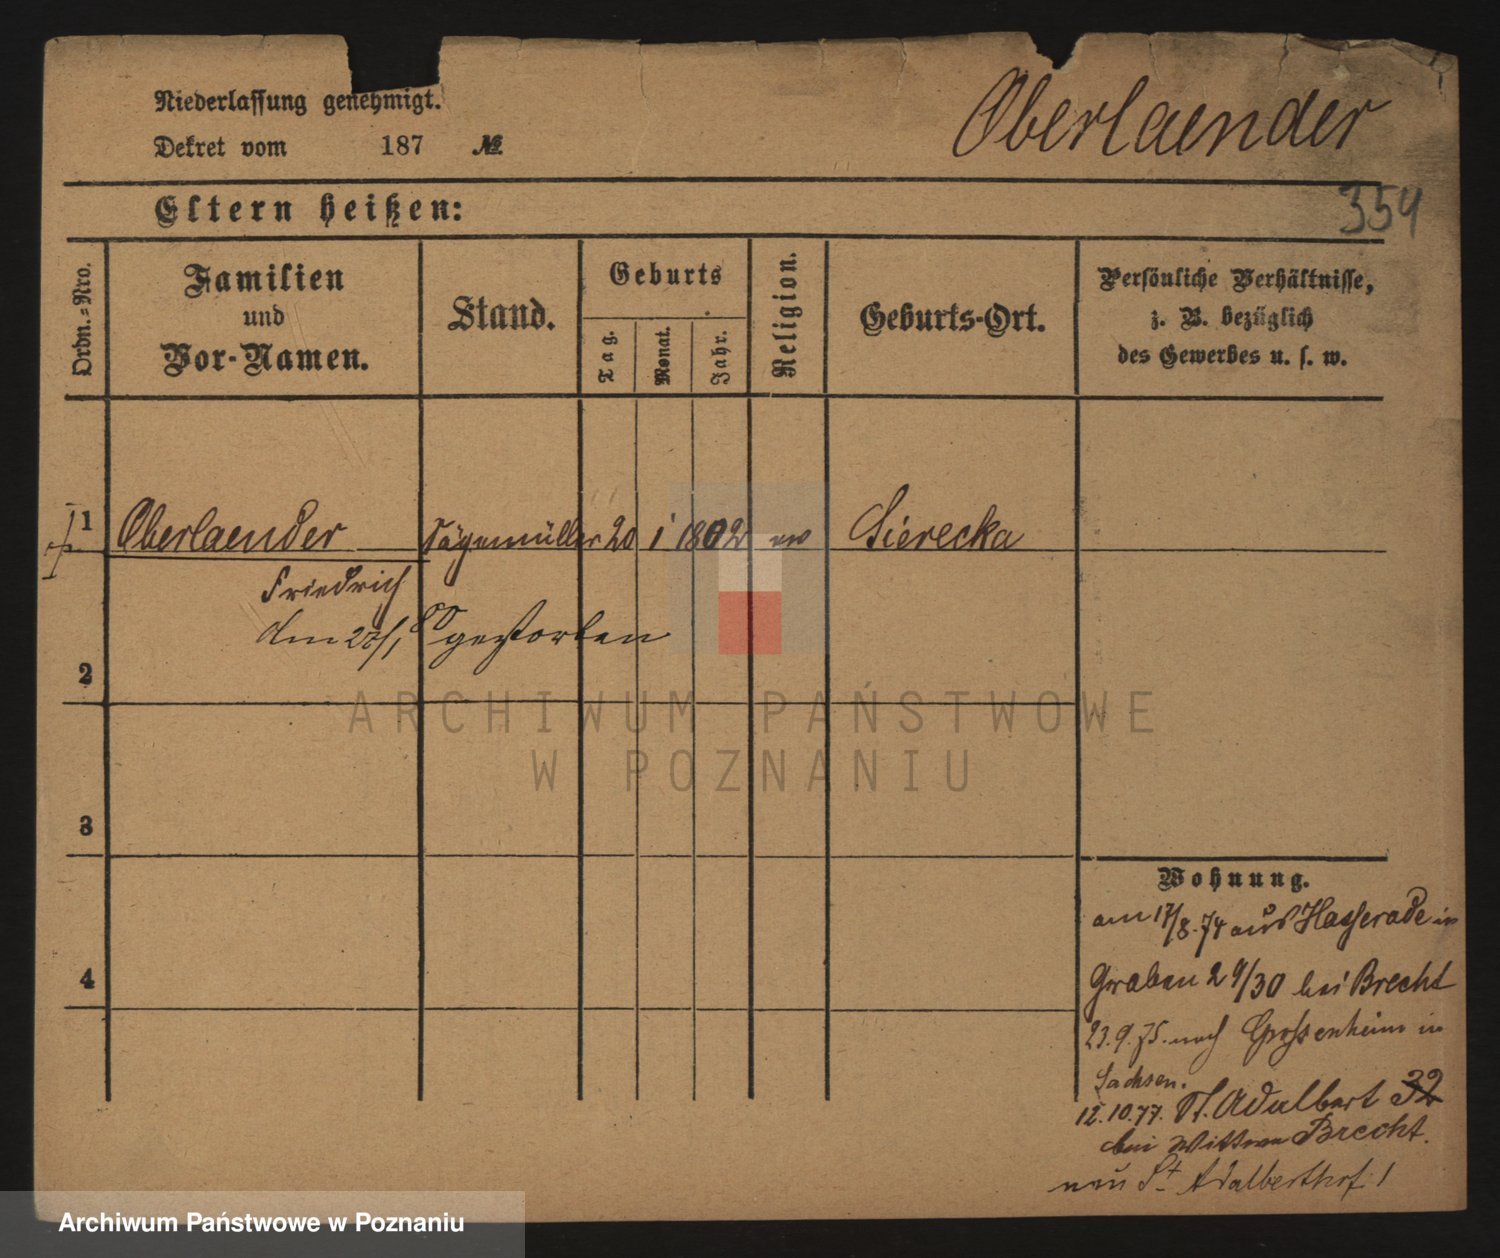 Niederlassung genehmigt.
Dekret vom 187 №
Oberlaender
354
Eltern heißen:
Ordn.=Nro.
Familien
und
Vor-Namen.
Stand.
Geburts
Tag.
Monat.
Jahr.
Religion.
Geburts-Ort.
Persönliche Verhältnisse,
z. B. bezüglich
des Gewerbes u. s. w.
1 Oberlaender Sägemüller 20 1 1802 ev Sierecka
Friedrich
2
3
4
gestorben
Wohnung.
am 17/8.74 aus Hasserade in
Graben 29/30 bei Brecht
23.9.75. nach Grossenheim in
Sachsen.
12.10.77. St. Adalbert 32
bei Wittwe Brecht.
neu St. Adalberthof 1
ARCHIWUM PAŃSTWOWE
W POZNANIU
Archiwum Państwowe w Poznaniu